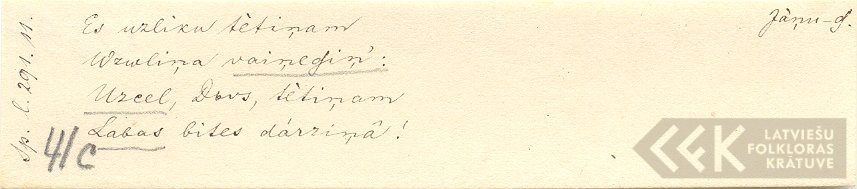 Jāņu-d.
Es uzliku tētiņam
Wzwliņa vaiņegiņ':
Uzcel, Dews, tētiņam
Labas bites dārziņâ!
Sp. l. 291. 11.
41c
LATVIEŠU
FOLKLORAS
KRĀTUVE